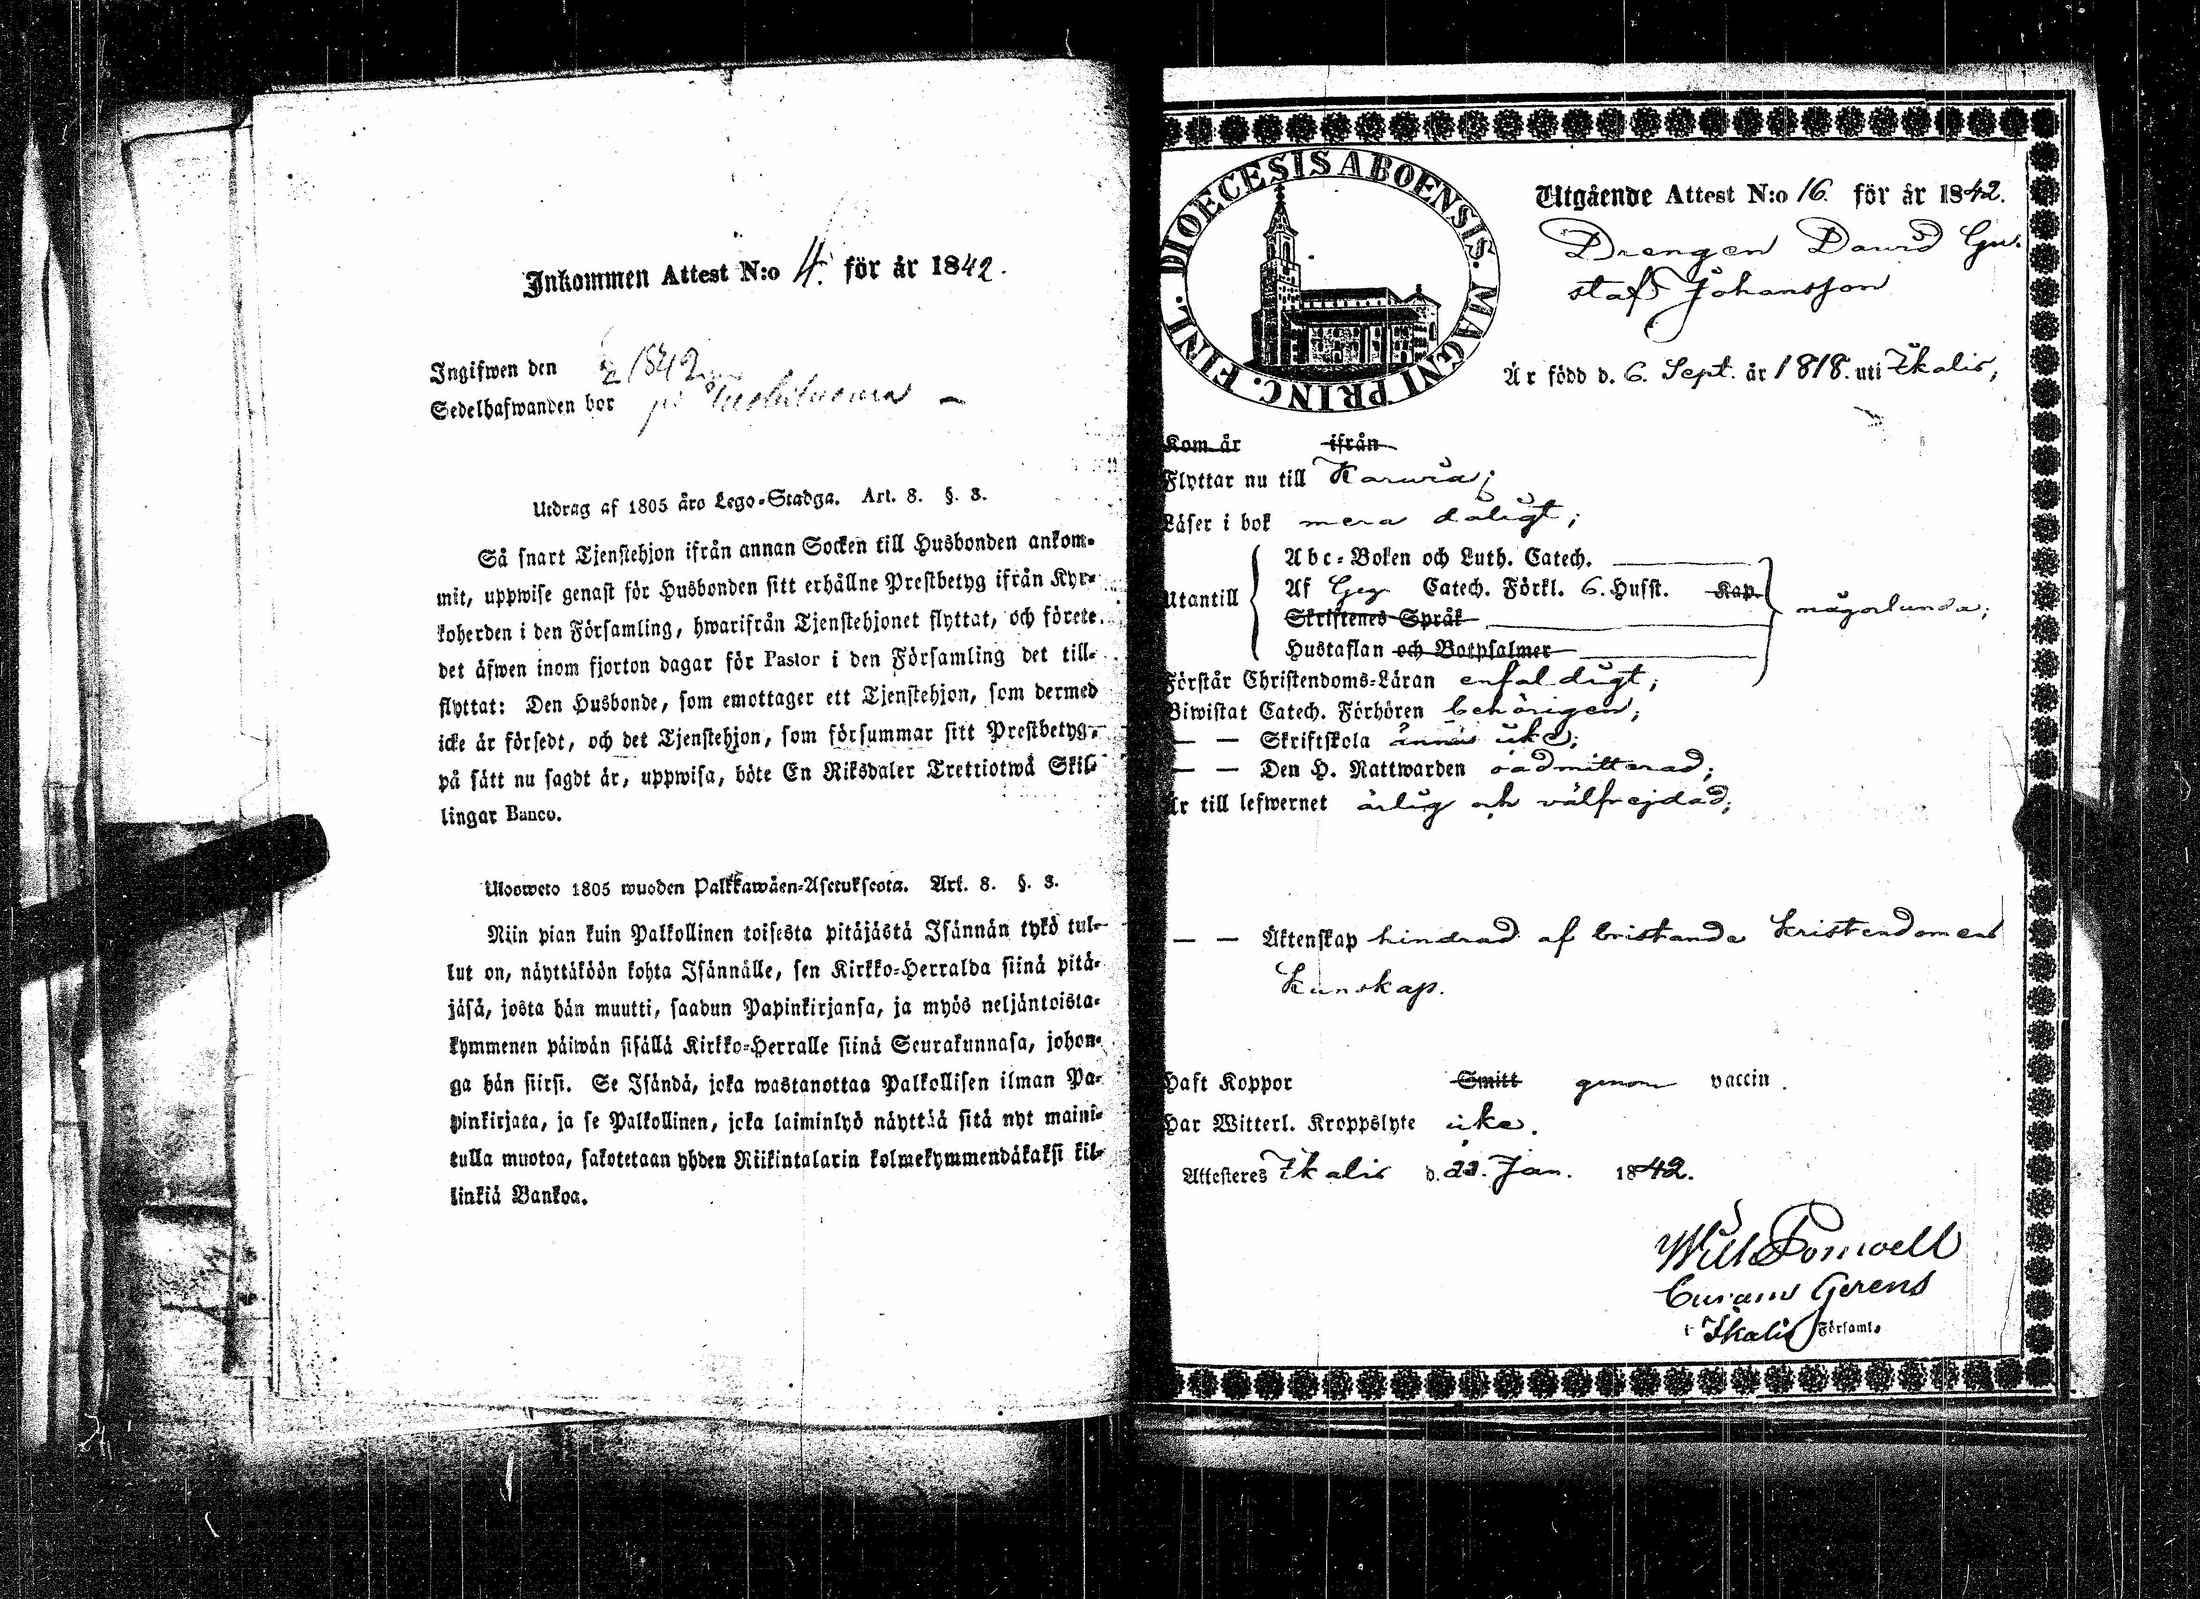 Inkommen Attest N:o 4. för år 1842.
Ingifwen den 1842
Sedelhafwanden bor på
Utdrag af 1805 års Lego-Stadga. Art. 8. §. 3.
Så snart Tjenstehjon ifrån annan Socken till Husbonden ankom-
mit, uppwise genast för Husbonden sitt erhållne Prestbetyg ifrån Kyr-
koherden i den Församling, hwarifrån Tjenstehjonet flyttat, och förete
det äfwen inom fjorton dagar för Pastor i den Församling det till-
flyttat: Den Husbonde, som emottager ett Tjenstehjon, som dermed
icke är försedt, och det Tjenstehjon, som försummar sitt Prestbetyg,
på sätt nu sagdt är, uppwisa, böte En Riksdaler Trettiotwå Skil-
lingar Banco.
Ulosweto 1805 wuoden Palkkawäen-Asetuksesta. Art. 8. §. 3.
Niin pian kuin Palkollinen toisesta pitäjästä Isännän tykö tul-
lut on, näyttäköön kohta Isännälle, sen Kirkko-Herralda siinä pitä-
jäsä, josta hän muutti, saadun Papinkirjansa, ja myös neljäntoista-
kymmenen päiwän sisällä Kirkko-Herralle siinä Seurakunnasa, johon-
ga hän siirsi. Se Isändä, joka wastanottaa Palkollisen ilman Pa-
pinkirjata, ja se Palkollinen, joka laiminlyö näyttää sitä nyt maini-
tulla muotoa, sakotetaan yhden Riikintalarin kolmekymmendäkaksi kil-
linkiä Bankoa.
DIOECESIS ABOENSIS. MAGNI PRINC. FINL.
Utgående Attest N:o 16. för år 1842.
Drengen David Gu-
staf Johansson
Är född d. 6. Sept. år 1818. uti Ikalis,
Kom år ifrån
Flyttar nu till Karvia;
Läser i bok mera dåligt;
Utantill
Abc-Boken och Luth. Catech.
Af Gez. Catech. Förkl. 6. Husst. Kap.
Skriftenes Språk
någorlunda;
Hustaflan och Botpsalmer
Förstår Christendoms-Läran enfaldigt;
Biwistat Catech. Förhören behörigen;
— — Skriftskola ännu icke;
— — Den H. Nattwarden oadmitterad;
Är till lefwernet ärlig och välfrejdad;
— — Äktenskap hindrad af bristande Kristendomens
Kunskap.
Haft Koppor Smitt genom vaccin.
Har Witterl. Kroppslyte icke.
Attesteres Ikalis d. Jan. 1842.
Curam Gerens
i Ikalis Församl.